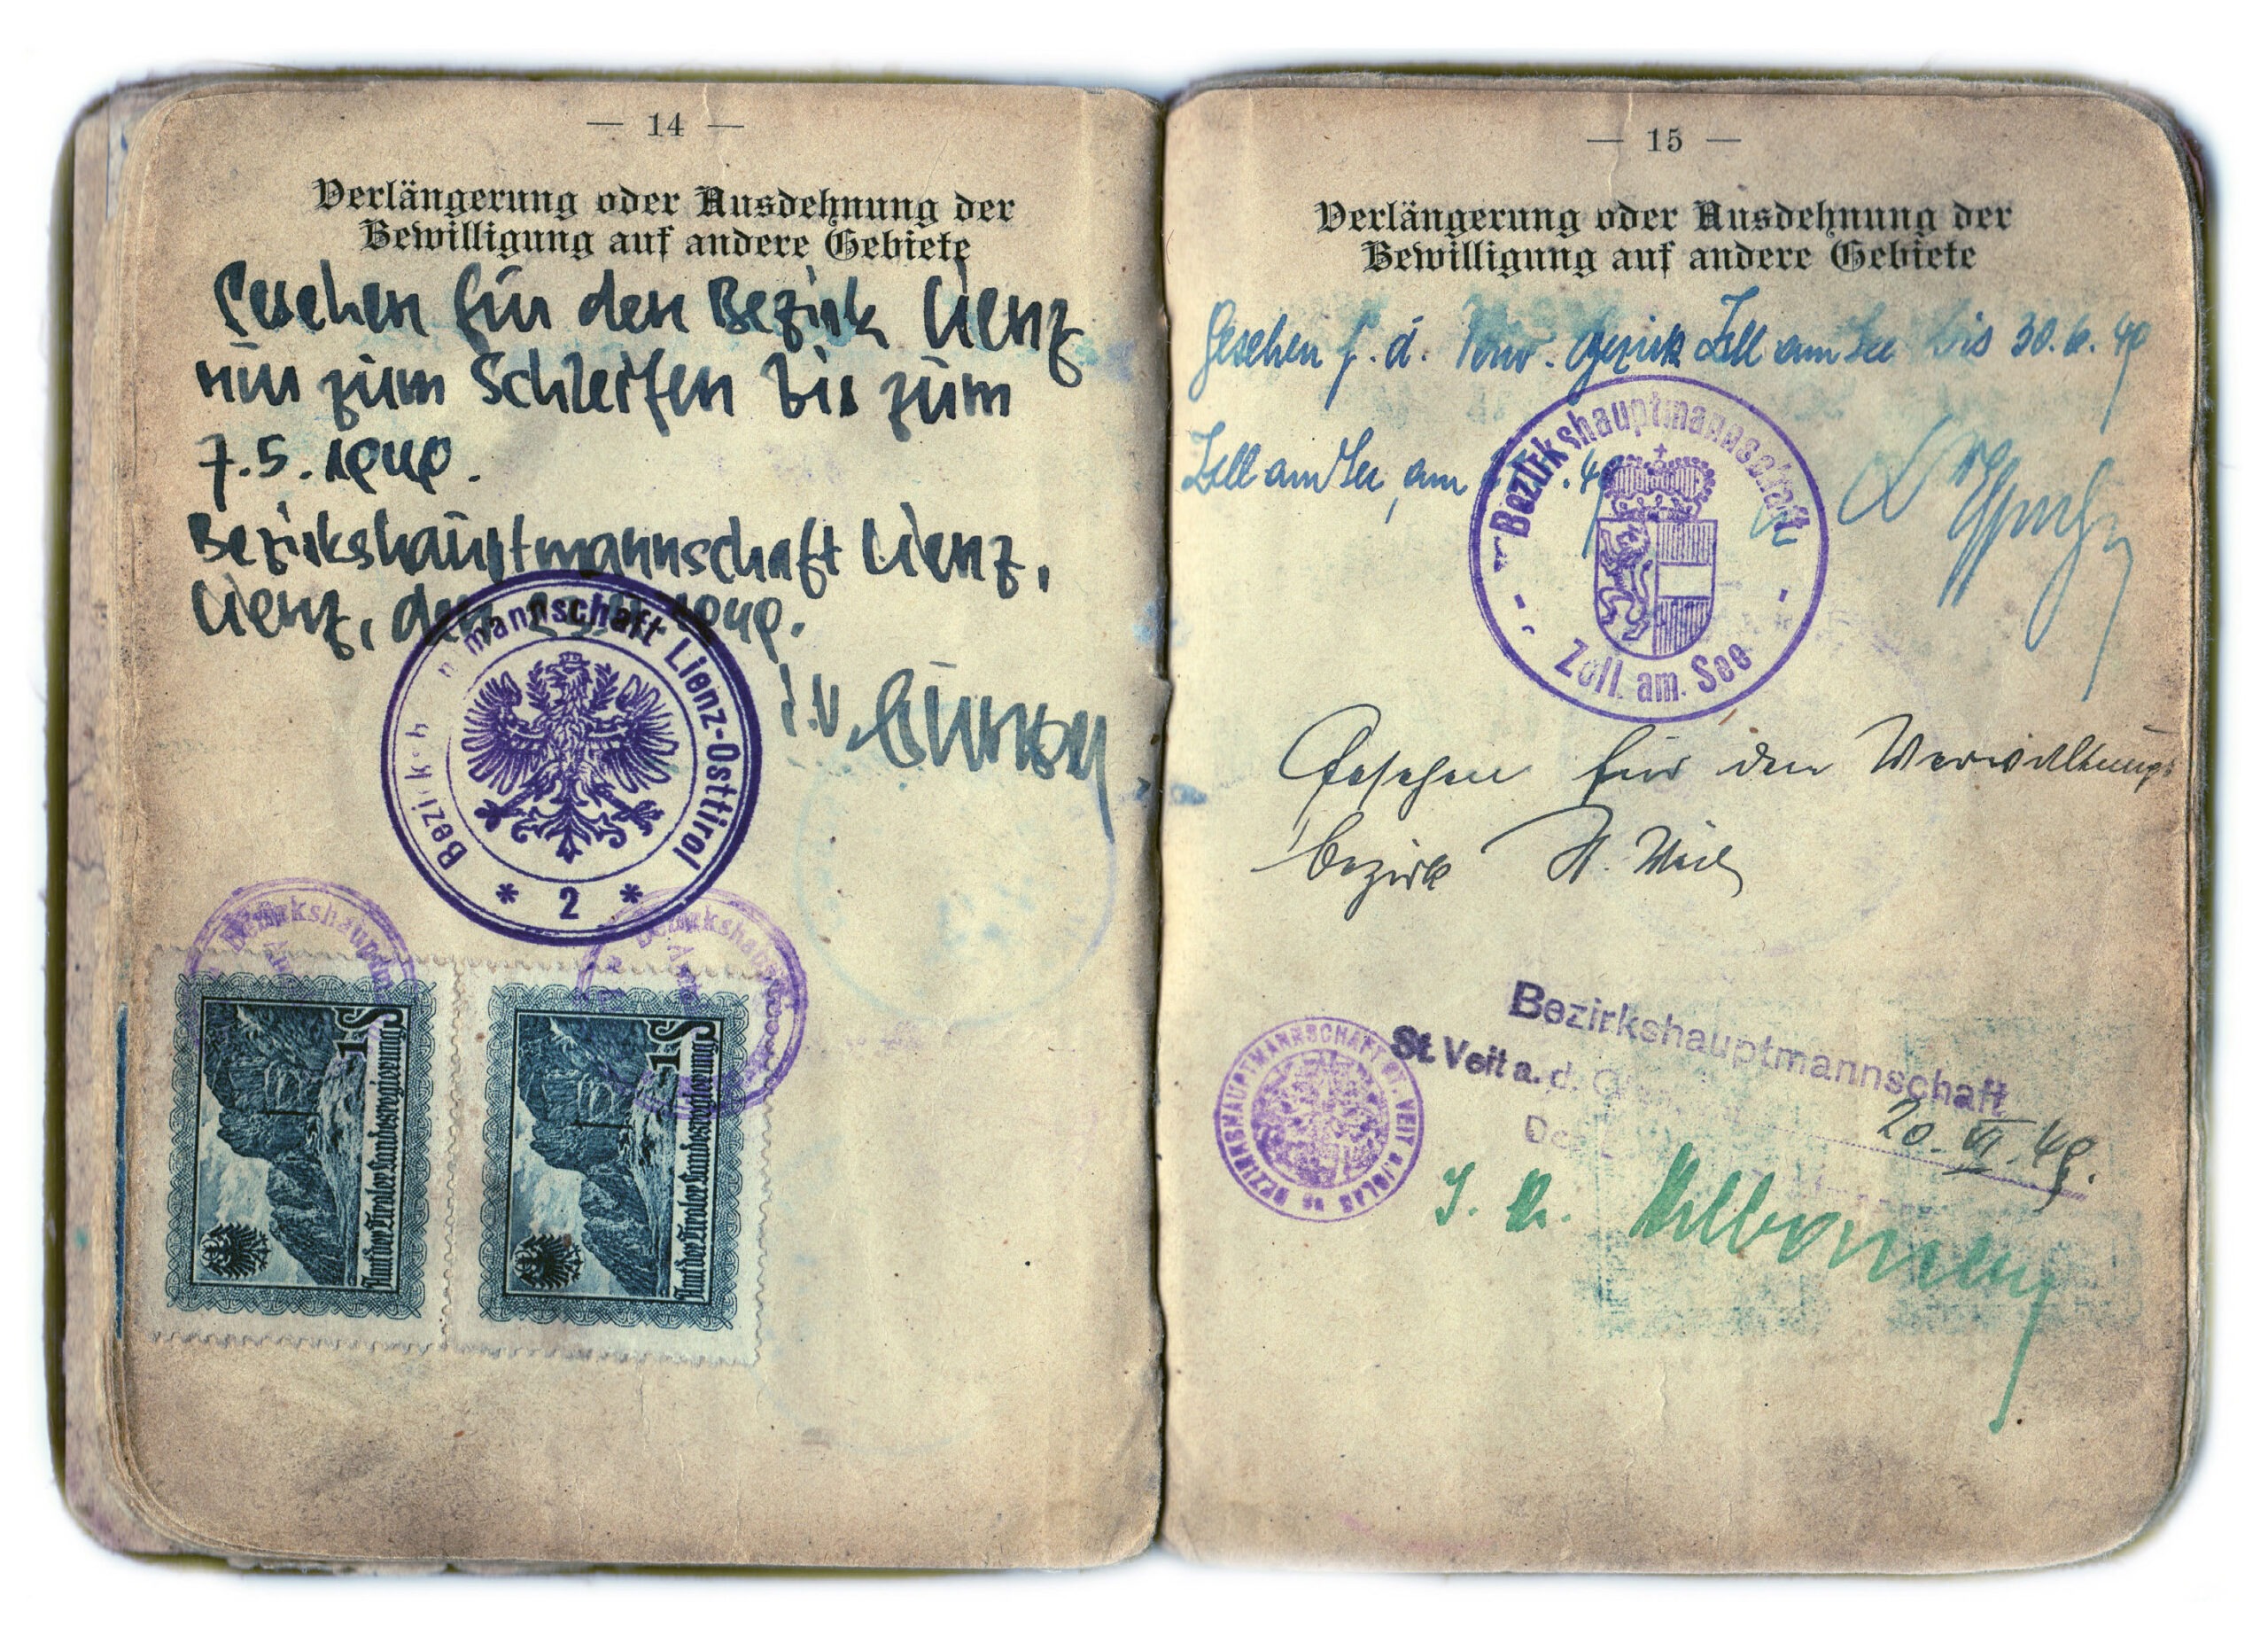 — 14 —
Verlängerung oder Ausdehnung der
Bewilligung auf andere Gebiete
Gesehen für den Bezirk Lienz
nur zum Schleifen bis zum
7.5.1949.
Bezirkshauptmannschaft Lienz,
Lienz, den 1949.
i.V.
Bezirksh mannschaft Lienz-Osttirol
* 2 *
Bezirkshauptm
Bezirkshauptm
1 S
Amt der Tiroler Landesregierung
1 S
Amt der Tiroler Landesregierung
— 15 —
Verlängerung oder Ausdehnung der
Bewilligung auf andere Gebiete
Gesehen f. d. Verw. Bezirk Zell am See bis 30.6.49
Zell am See, am .49
Bezirkshauptmannschaft
Zell am See
Gesehen für den Verwaltungs
bezirk St. Veit
Bezirkshauptmannschaft
St. Veit a. d. Glan
BEZIRKSHAUPTMANNSCHAFT ST. VEIT A/GLAN
20. VI. 49.